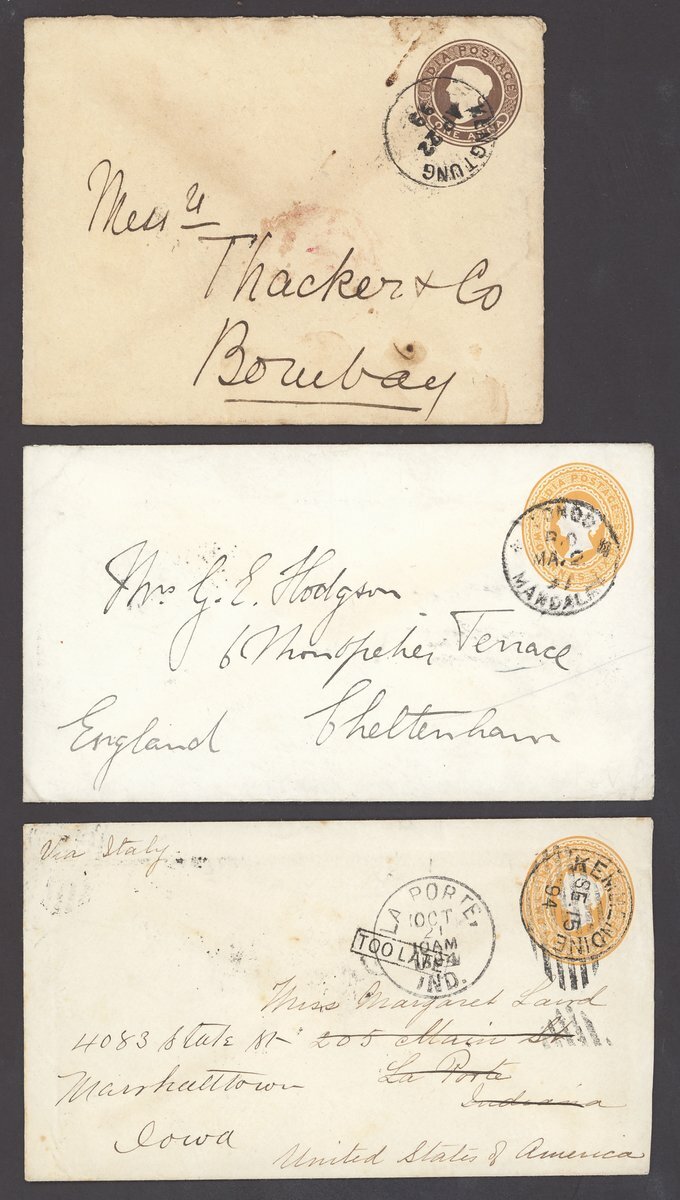 INDIA POSTAGE
ONE ANNA
KENGTUNG
22
Messrs
Thacker & Co
Bombay
INDIA POSTAGE
P.O
MA. 2
MANDALAY
Mrs G. E. Hodgson
6 Montpelier Terrace
Cheltenham
England
Via Italy
LA PORTE,
OCT
21
10AM
IND.
TOO LATE
KEMMENDINE
SE 15
94
Miss Margaret Laird
205 Main St
La Porte
Indiana
4083 State St
Marshalltown
Iowa
United States of America